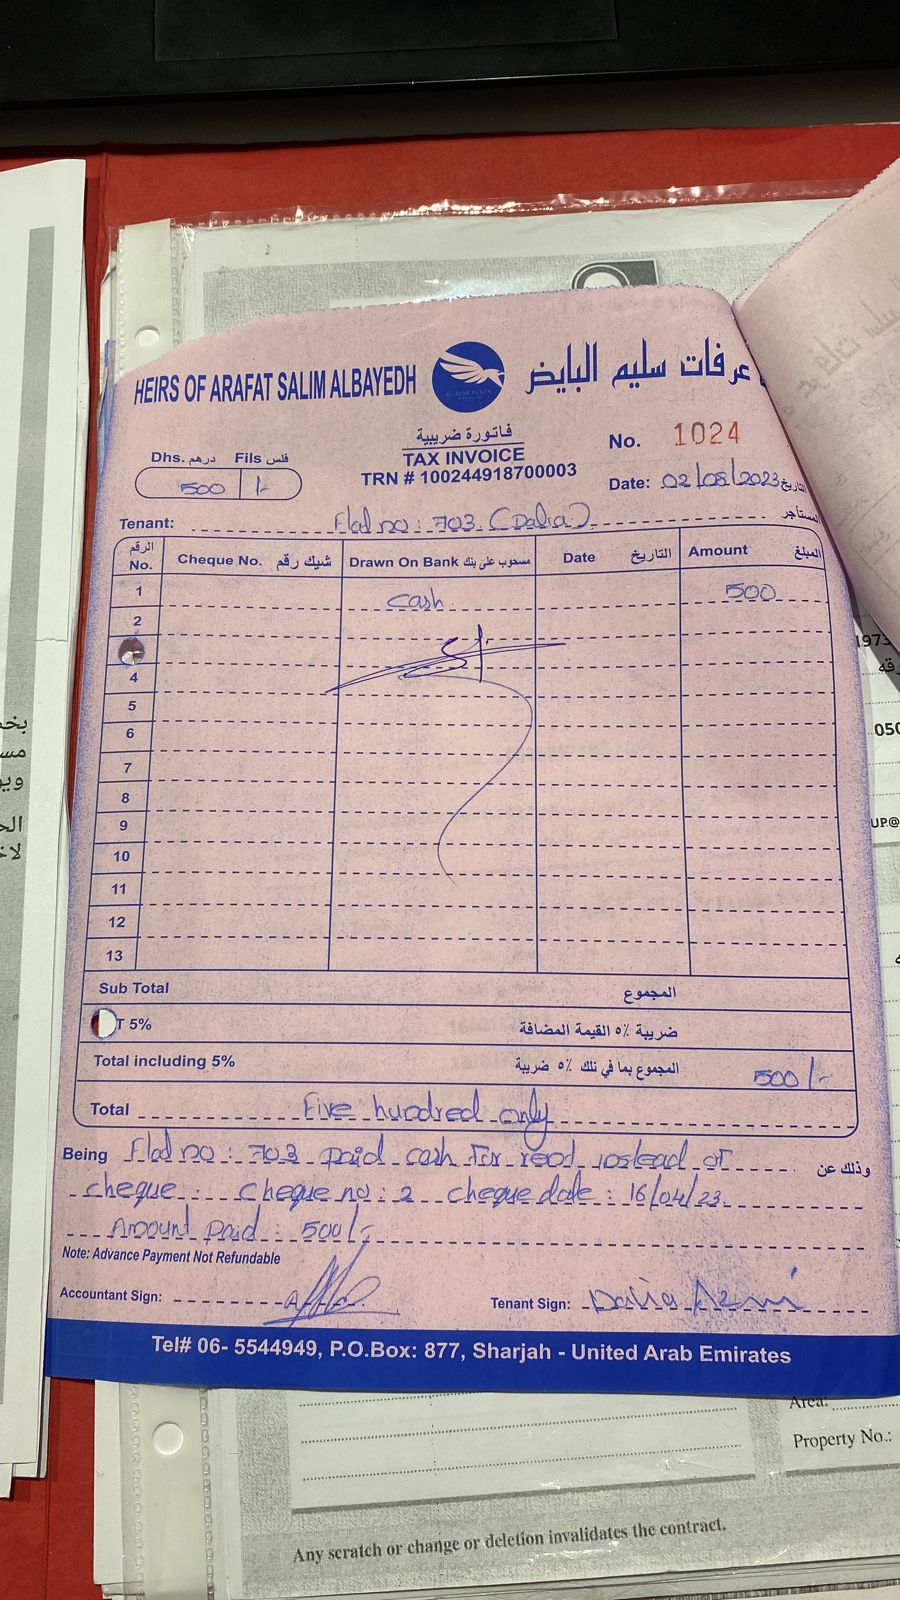 HEIRS OF ARAFAT SALIM ALBAYEDH
عرفات سليم البايض
فاتورة ضريبية
TAX INVOICE
TRN # 100244918700003
No. 1024
Dhs. درهم Fils فلس
500 /-
Date: 02/08/2023 التاريخ
Tenant: Flat no : 703 (Dalia) المستأجر
الرقم No. Cheque No. شيك رقم Drawn On Bank مسحوب على بنك Date التاريخ Amount المبلغ
1 cash 500
2
4
5
6
7
8
9
10
11
12
13
Sub Total المجموع
T 5% ضريبة ٥٪ القيمة المضافة
Total including 5% المجموع بما في ذلك ٥٪ ضريبة 500/-
Total Five hundred only
Being Flat no : 703 paid cash for rent instead of وذلك عن
cheque . Cheque no : 2 cheque date : 16/04/23
Amount paid : 500/-
Note: Advance Payment Not Refundable
Accountant Sign:
Tenant Sign: Dalia Azmi
Tel# 06- 5544949, P.O.Box: 877, Sharjah - United Arab Emirates
1973
050
UP@
Area:
Property No.:
Any scratch or change or deletion invalidates the contract.